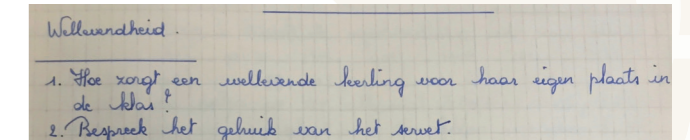 Wellevendheid.
1. Hoe zorgt een wellevende leerling voor haar eigen plaats in
de klas?
2. Bespreek het gebruik van het servet.